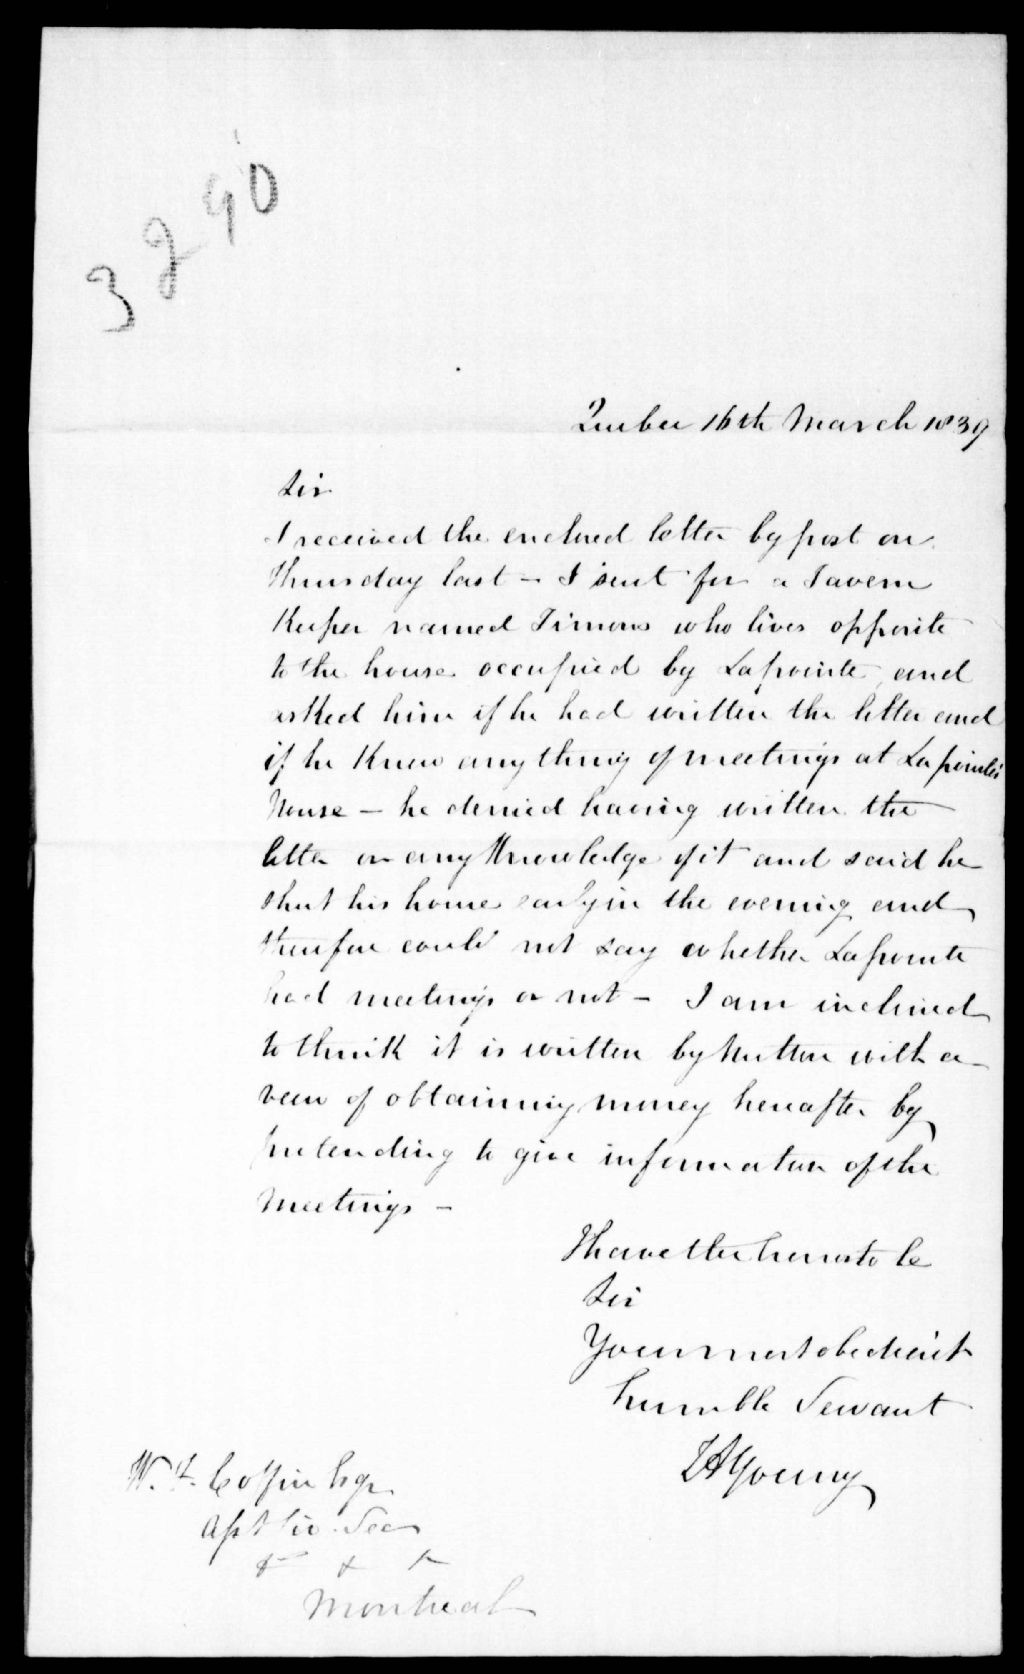 3290
Quebec 16th March 1839
Sir
I received the enclosed letter by post on
Thursday last - I sent for a Tavern
Keeper named Timons who lives opposite
to the house occupied by Lapointe, and
asked him if he had written the letter and
if he knew any thing of meetings at Lapointe's
House - he denied having written the
letter or any Knowledge of it and said he
shut his house early in the evening and
therefore could not say whether Lapointe
had meetings or not - I am inclined
to think it is written by Hutton with a
view of obtaining money hereafter by
pretending to give information of the
meetings -
I have the honor to be
Sir
Your most obedient
humble Servant
TA Young
W. F. Coffin Esqr
Asst Civ. Sec
& & &
Montreal